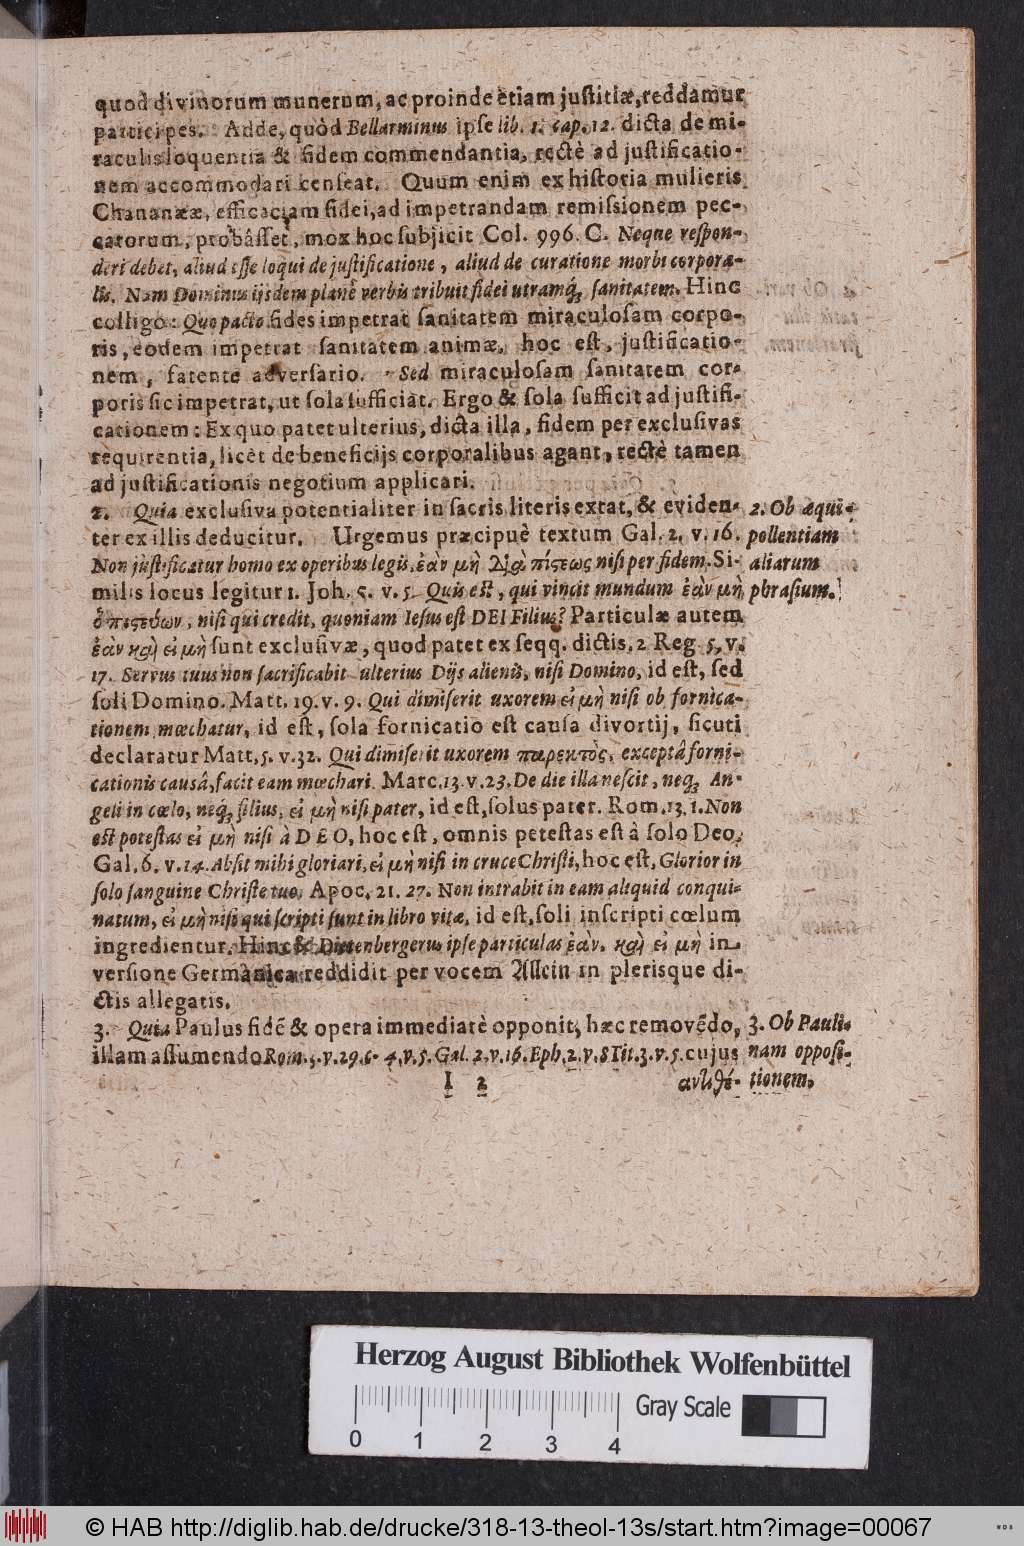 quod divinorum munerum, ac proinde etiam justitiæ, reddamur
participes. Adde, quòd Bellarminus ipse lib. 1. cap. 12. dicta de mi-
raculis loquentia & fidem commendantia, rectè ad justificatio-
nem accommodari censeat. Quum enim ex historia mulieris
Chananææ, efficaciam fidei, ad impetrandam remissionem pec-
catorum, probâsset, mox hoc subjicit Col. 996. C. Neque respon-
deri debet, aliud esse loqui de justificatione, aliud de curatione morbi corpora-
lis. Nam Dominus ijsdem planè verbis tribuit fidei utramq́; sanitatem. Hinc
colligo: Quo pacto fides impetrat sanitatem miraculosam corpo-
ris, eodem impetrat sanitatem animæ, hoc est, justificatio-
nem, fatente adversario. Sed miraculosam sanitatem cor-
poris sic impetrat, ut sola sufficiat. Ergo & sola sufficit ad justifi-
cationem: Ex quo patet ulterius, dicta illa, fidem per exclusivas
requirentia, licèt de beneficijs corporalibus agant, rectè tamen
ad justificationis negotium applicari.
2. Quia exclusiva potentialiter in sacris literis extat, & eviden-
ter ex illis deducitur. Urgemus præcipuè textum Gal. 2. v. 16.
Non justificatur homo ex operibus legis, ἐὰν μὴ Διὰ πίστεως nisi per fidem. Si-
milis locus legitur 1. Joh. 5. v. 5. Quis est, qui vincit mundum ἐὰν μὴ
ὁ πιστεύων, nisi qui credit, quoniam Iesus est DEI Filius? Particulæ autem
ἐὰν καὶ εἰ μὴ sunt exclusivæ, quod patet ex seqq. dictis, 2 Reg. 5. v.
17. Servus tuus non sacrificabit ulterius Dijs alienis, nisi Domino, id est, sed
soli Domino. Matt. 19. v. 9. Qui dimiserit uxorem εἰ μὴ nisi ob fornica-
tionem, mœchatur, id est, sola fornicatio est causa divortij, sicuti
declaratur Matt. 5. v. 32. Qui dimiserit uxorem παρεκτὸς, exceptâ forni-
cationis causâ, facit eam mœchari. Marc. 13. v. 23. De die illa nescit, neq; An-
geli in cœlo, neq́; filius, εἰ μὴ nisi pater, id est, solus pater. Rom. 13, 1. Non
est potestas εἰ μὴ nisi à DEO, hoc est, omnis petestas est à solo Deo.
Gal. 6. v. 14. Absit mihi gloriari, εἰ μὴ nisi in cruce Christi, hoc est, Glorior in
solo sanguine Christe tuo. Apoc. 21. 27. Non intrabit in eam aliquid conqui-
natum, εἰ μὴ nisi qui scripti sunt in libro vitæ, id est, soli inscripti cœlum
ingredientur. Hinc & Dietenbergerus ipse particulas ἐὰν. καὶ εἰ μὴ in
versione Germanica reddidit per vocem Allein in plerisque di-
ctis allegatis.
3. Quia Paulus fidē & opera immediatè opponit, hæc removēdo,
illam assumendo Rom. 3. v. 29. 6. 4. v. 5. Gal. 2. v. 16. Eph. 2. v. 8 Tit. 3. v. 5. cujus
I 2
ἀντιθέ-
2. Ob æqui-
pollentiam
aliarum
phrasium.
3. Ob Pauli-
nam opposi-
tionem.
Herzog August Bibliothek Wolfenbüttel
0 1 2 3 4
Gray Scale
© HAB http://diglib.hab.de/drucke/318-13-theol-13s/start.htm?image=00067